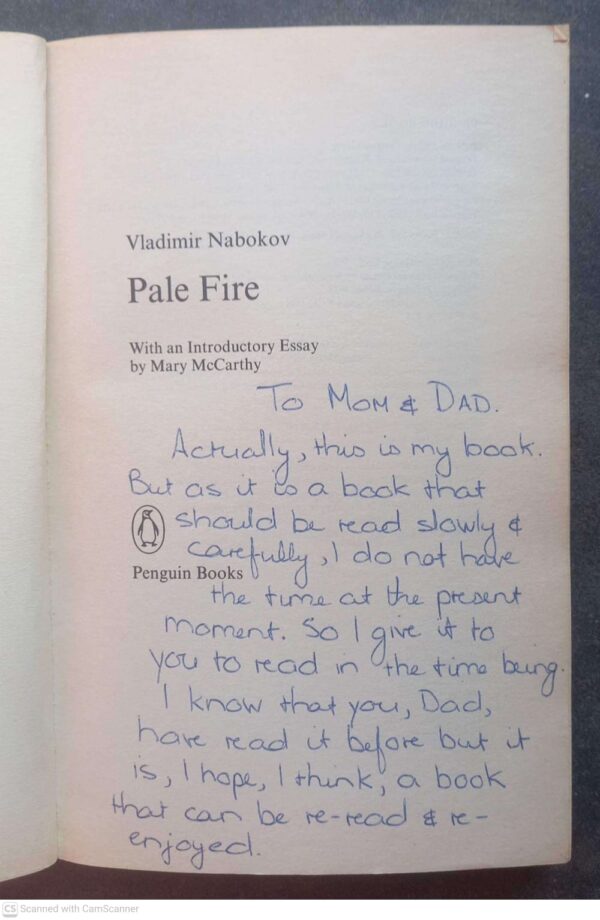 Vladimir Nabokov
Pale Fire
With an Introductory Essay
by Mary McCarthy
To Mom & Dad.
Actually, this is my book.
But as it is a book that
should be read slowly &
carefully, I do not have
Penguin Books
the time at the present
moment. So I give it to
you to read in the time being.
I know that you, Dad,
have read it before but it
is, I hope, I think, a book
that can be re-read & re-
enjoyed.
CS Scanned with CamScanner